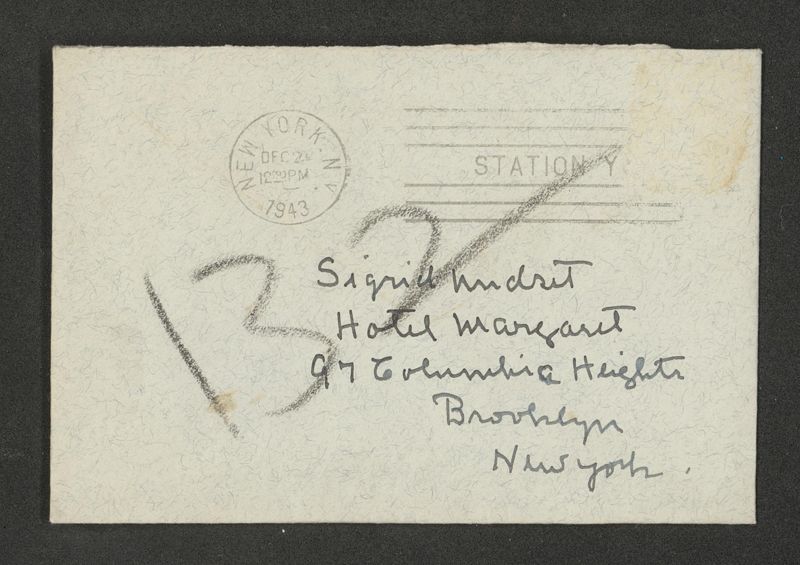 NEW YORK, N.Y.
DEC 2
12 PM
1943
STATION Y
132
Sigrid Undset
Hotel Margaret
97 Columbia Heights
Brooklyn
New York.